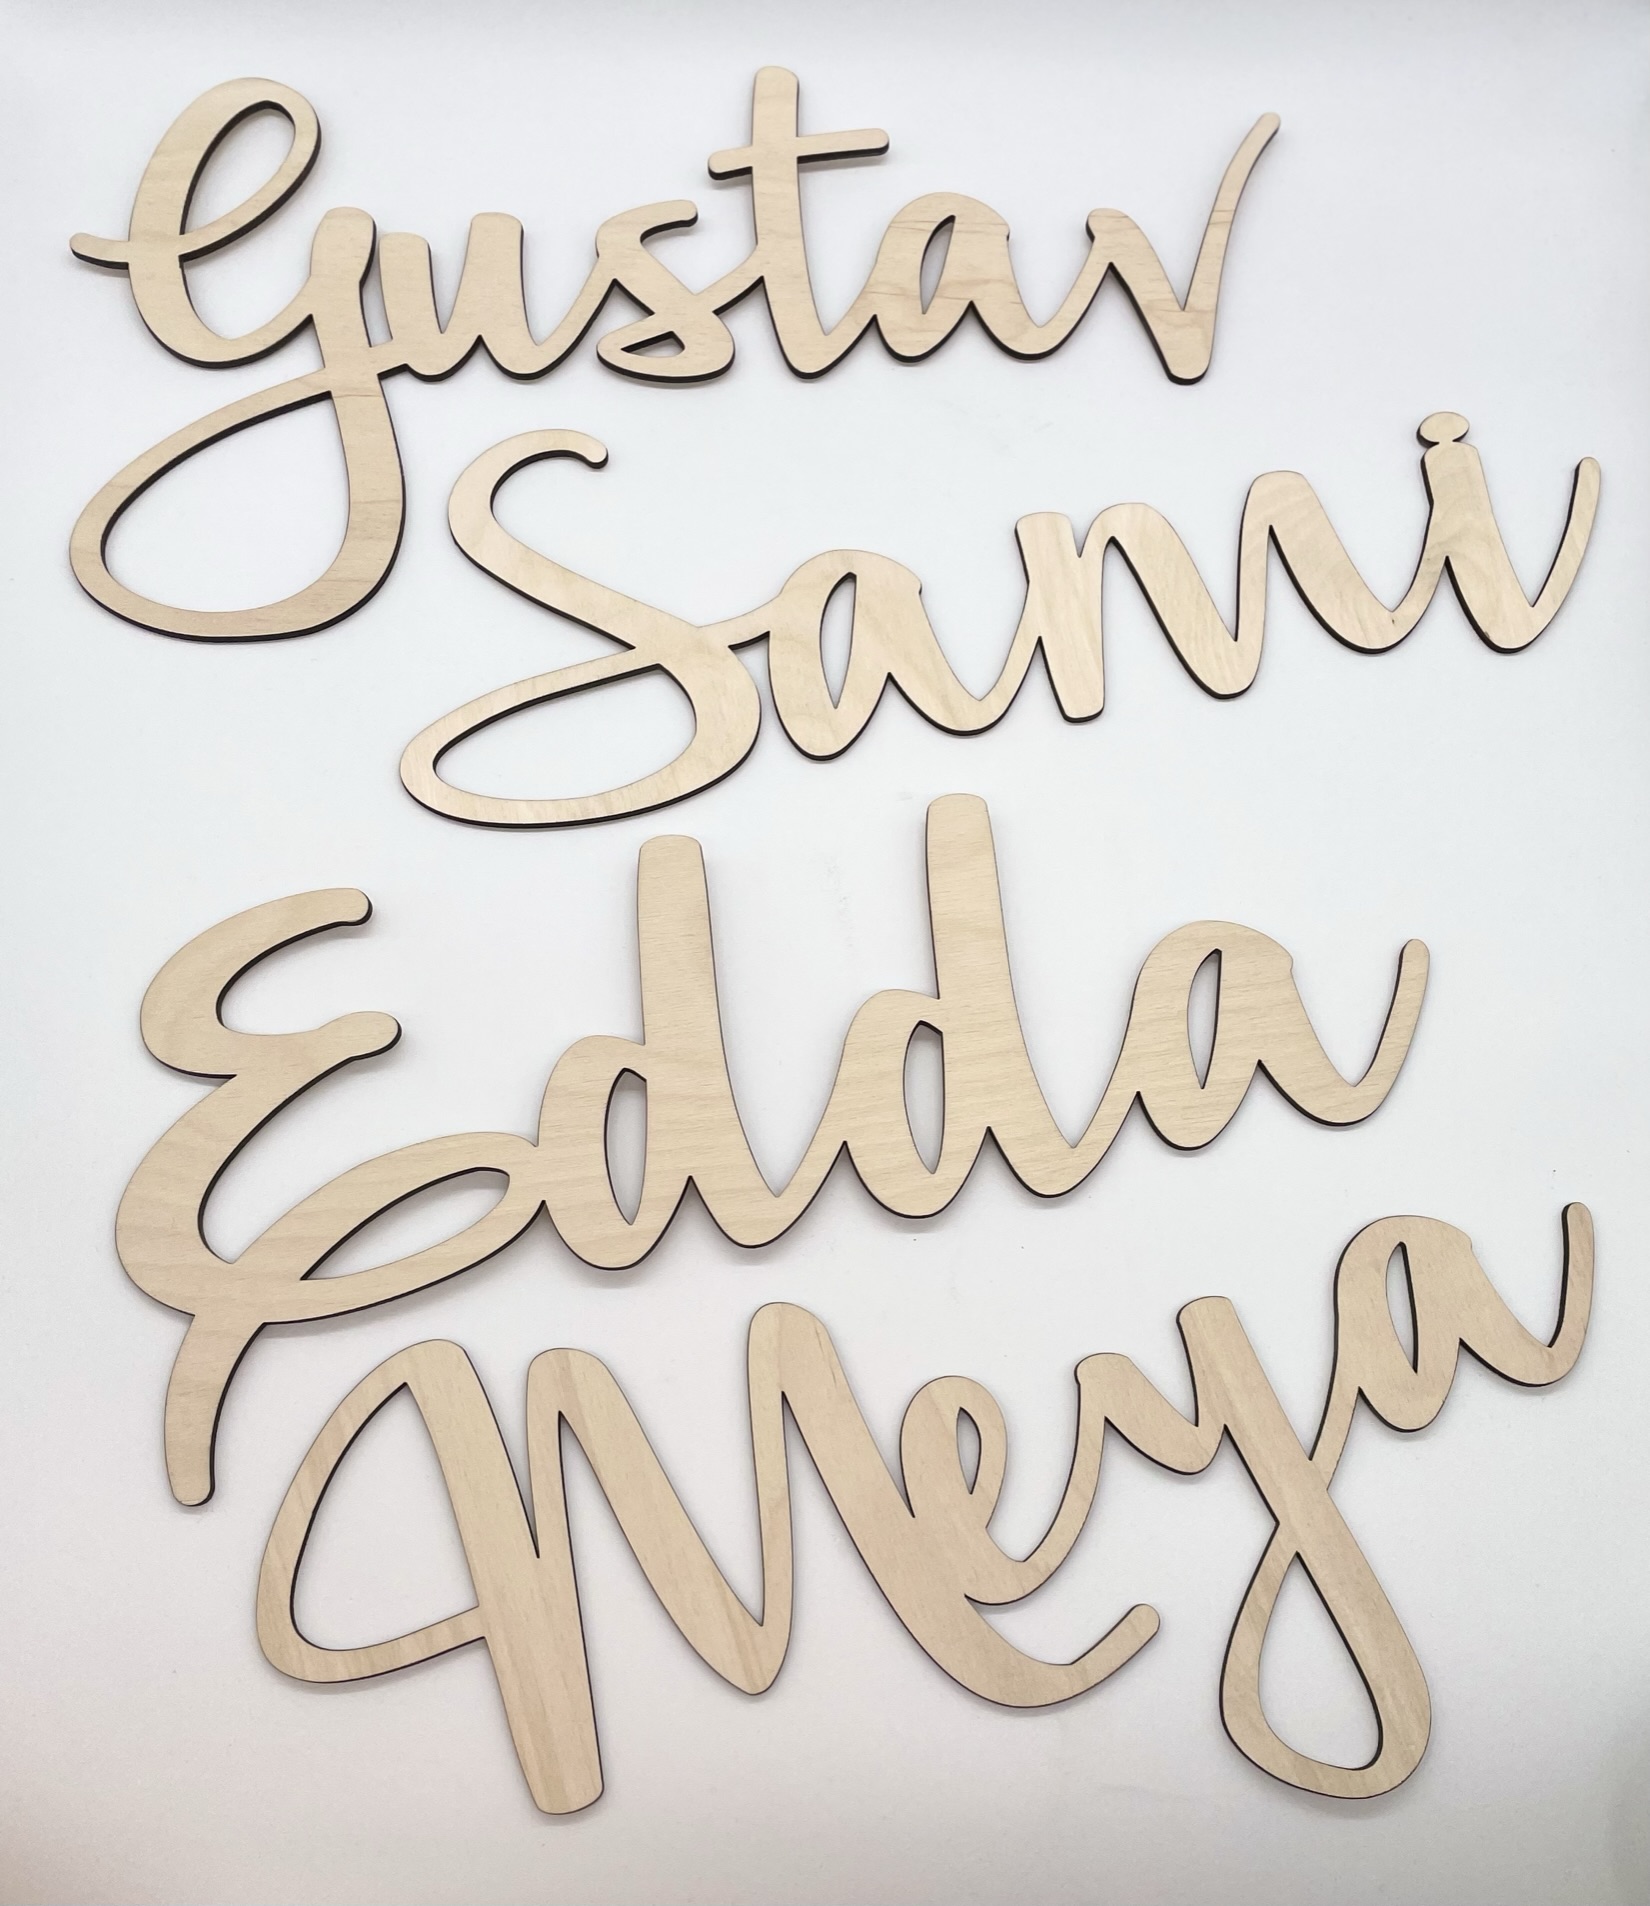 Gustav
Sami
Edda
Meya